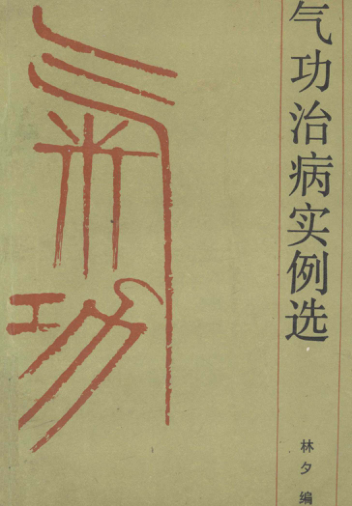 气功治病实例选
氣功
林夕 编